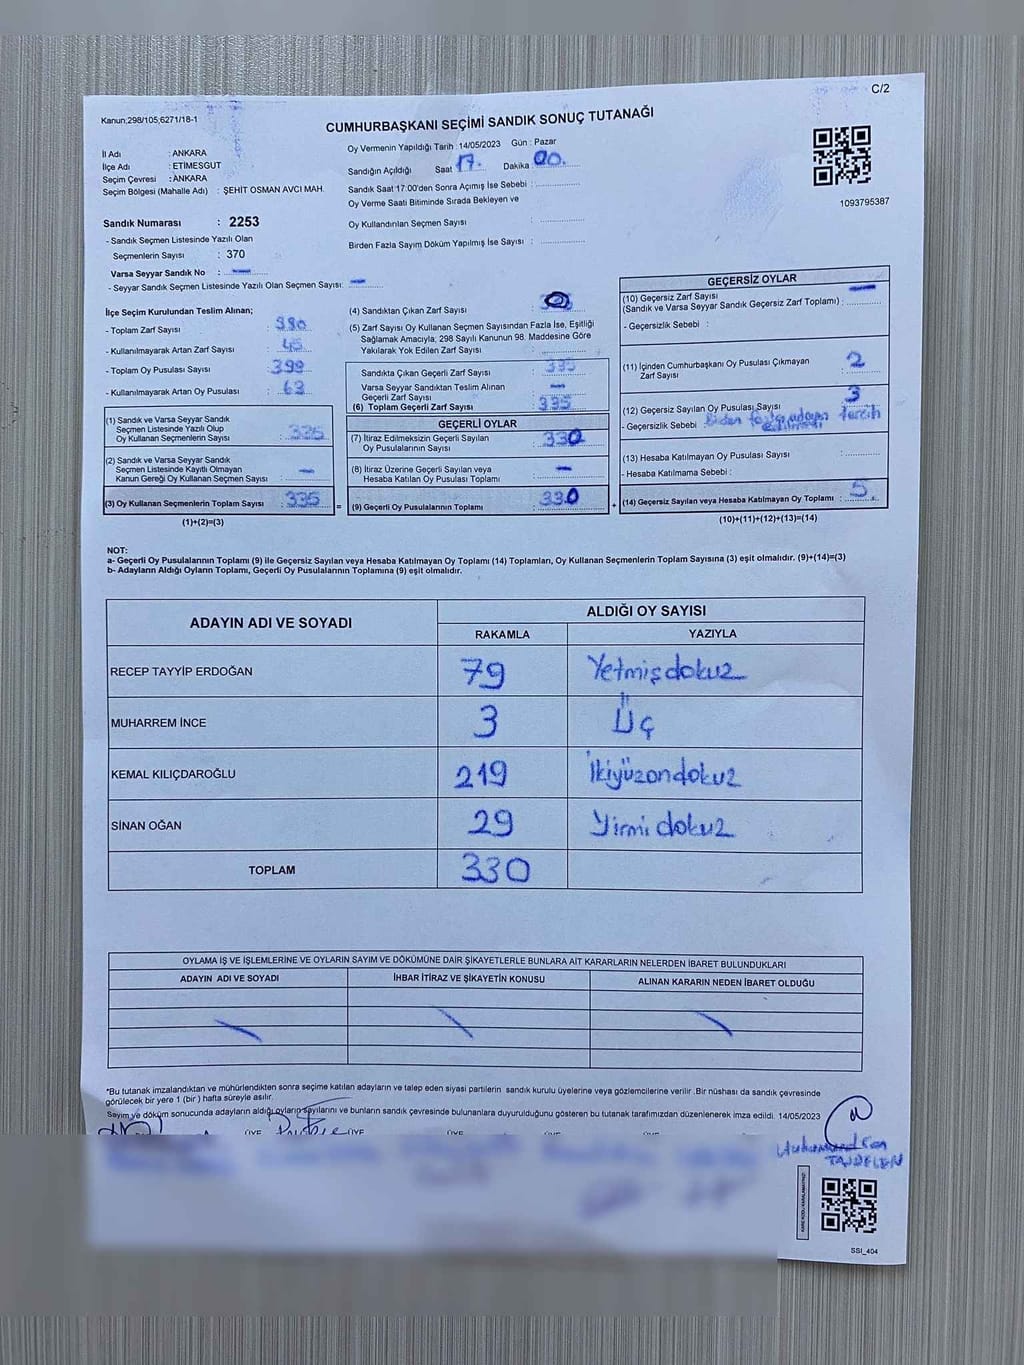 C/2
Kanun;298/105;6271/18-1
CUMHURBAŞKANI SEÇİMİ SANDIK SONUÇ TUTANAĞI
İl Adı : ANKARA
İlçe Adı : ETİMESGUT
Seçim Çevresi : ANKARA
Seçim Bölgesi (Mahalle Adı) : ŞEHİT OSMAN AVCI MAH.
Oy Vermenin Yapıldığı Tarih : 14/05/2023 Gün : Pazar
Sandığın Açıldığı Saat 17. Dakika 00.
Sandık Saat 17:00'den Sonra Açımış İse Sebebi :
Oy Verme Saati Bitiminde Sırada Bekleyen ve
Oy Kullandırılan Seçmen Sayısı :
Birden Fazla Sayım Döküm Yapılmış İse Sayısı :
1093795387
Sandık Numarası : 2253
- Sandık Seçmen Listesinde Yazılı Olan
Seçmenlerin Sayısı : 370
Varsa Seyyar Sandık No : —
- Seyyar Sandık Seçmen Listesinde Yazılı Olan Seçmen Sayısı: —
İlçe Seçim Kurulundan Teslim Alınan;
- Toplam Zarf Sayısı : 380
- Kullanılmayarak Artan Zarf Sayısı : 45
- Toplam Oy Pusulası Sayısı : 399
- Kullanılmayarak Artan Oy Pusulası : 63
(1) Sandık ve Varsa Seyyar Sandık
Seçmen Listesinde Yazılı Olup
Oy Kullanan Seçmenlerin Sayısı : 335
(2) Sandık ve Varsa Seyyar Sandık
Seçmen Listesinde Kayıtlı Olmayan
Kanun Gereği Oy Kullanan Seçmen Sayısı : —
(3) Oy Kullanan Seçmenlerin Toplam Sayısı : 335
(1)+(2)=(3)
(4) Sandıktan Çıkan Zarf Sayısı :
(5) Zarf Sayısı Oy Kullanan Seçmen Sayısından Fazla İse, Eşitliği
Sağlamak Amacıyla; 298 Sayılı Kanunun 98. Maddesine Göre
Yakılarak Yok Edilen Zarf Sayısı :
Sandıkta Çıkan Geçerli Zarf Sayısı : 335
Varsa Seyyar Sandıktan Teslim Alınan
Geçerli Zarf Sayısı : —
(6) Toplam Geçerli Zarf Sayısı : 335
GEÇERLİ OYLAR
(7) İtiraz Edilmeksizin Geçerli Sayılan
Oy Pusulalarının Sayısı : 330
(8) İtiraz Üzerine Geçerli Sayılan veya
Hesaba Katılan Oy Pusulası Toplamı : —
(9) Geçerli Oy Pusulalarının Toplamı : 330
GEÇERSİZ OYLAR
(10) Geçersiz Zarf Sayısı
(Sandık ve Varsa Seyyar Sandık Geçersiz Zarf Toplamı) : —
- Geçersizlik Sebebi :
(11) İçinden Cumhurbaşkanı Oy Pusulası Çıkmayan
Zarf Sayısı : 2
(12) Geçersiz Sayılan Oy Pusulası Sayısı : 3
- Geçersizlik Sebebi
(13) Hesaba Katılmayan Oy Pusulası Sayısı :
- Hesaba Katılmama Sebebi :
(14) Geçersiz Sayılan veya Hesaba Katılmayan Oy Toplamı : 5
(10)+(11)+(12)+(13)=(14)
NOT:
a- Geçerli Oy Pusulalarının Toplamı (9) ile Geçersiz Sayılan veya Hesaba Katılmayan Oy Toplamı (14) Toplamları, Oy Kullanan Seçmenlerin Toplam Sayısına (3) eşit olmalıdır. (9)+(14)=(3)
b- Adayların Aldığı Oyların Toplamı, Geçerli Oy Pusulalarının Toplamına (9) eşit olmalıdır.
ADAYIN ADI VE SOYADI ALDIĞI OY SAYISI
RAKAMLA YAZIYLA
RECEP TAYYİP ERDOĞAN 79 Yetmişdokuz
MUHARREM İNCE 3 Üç
KEMAL KILIÇDAROĞLU 219 İkiyüzondokuz
SİNAN OĞAN 29 Yirmi dokuz
TOPLAM 330
OYLAMA İŞ VE İŞLEMLERİNE VE OYLARIN SAYIM VE DÖKÜMÜNE DAİR ŞİKAYETLERLE BUNLARA AİT KARARLARIN NELERDEN İBARET BULUNDUKLARI
ADAYIN ADI VE SOYADI İHBAR İTİRAZ VE ŞİKAYETİN KONUSU ALINAN KARARIN NEDEN İBARET OLDUĞU
*Bu tutanak imzalandıktan ve mühürlendikten sonra seçime katılan adayların ve talep eden siyasi partilerin sandık kurulu üyelerine veya gözlemcilerine verilir .Bir nüshası da sandık çevresinde
görülecek bir yere 1 (bir) hafta süreyle asılır.
Sayım ve döküm sonucunda adayların aldığı oyların sayılarını ve bunların sandık çevresinde bulunanlara duyurulduğunu gösteren bu tutanak tarafımızdan düzenlenerek imza edildi. 14/05/2023
TAŞDELEN
SSI_404